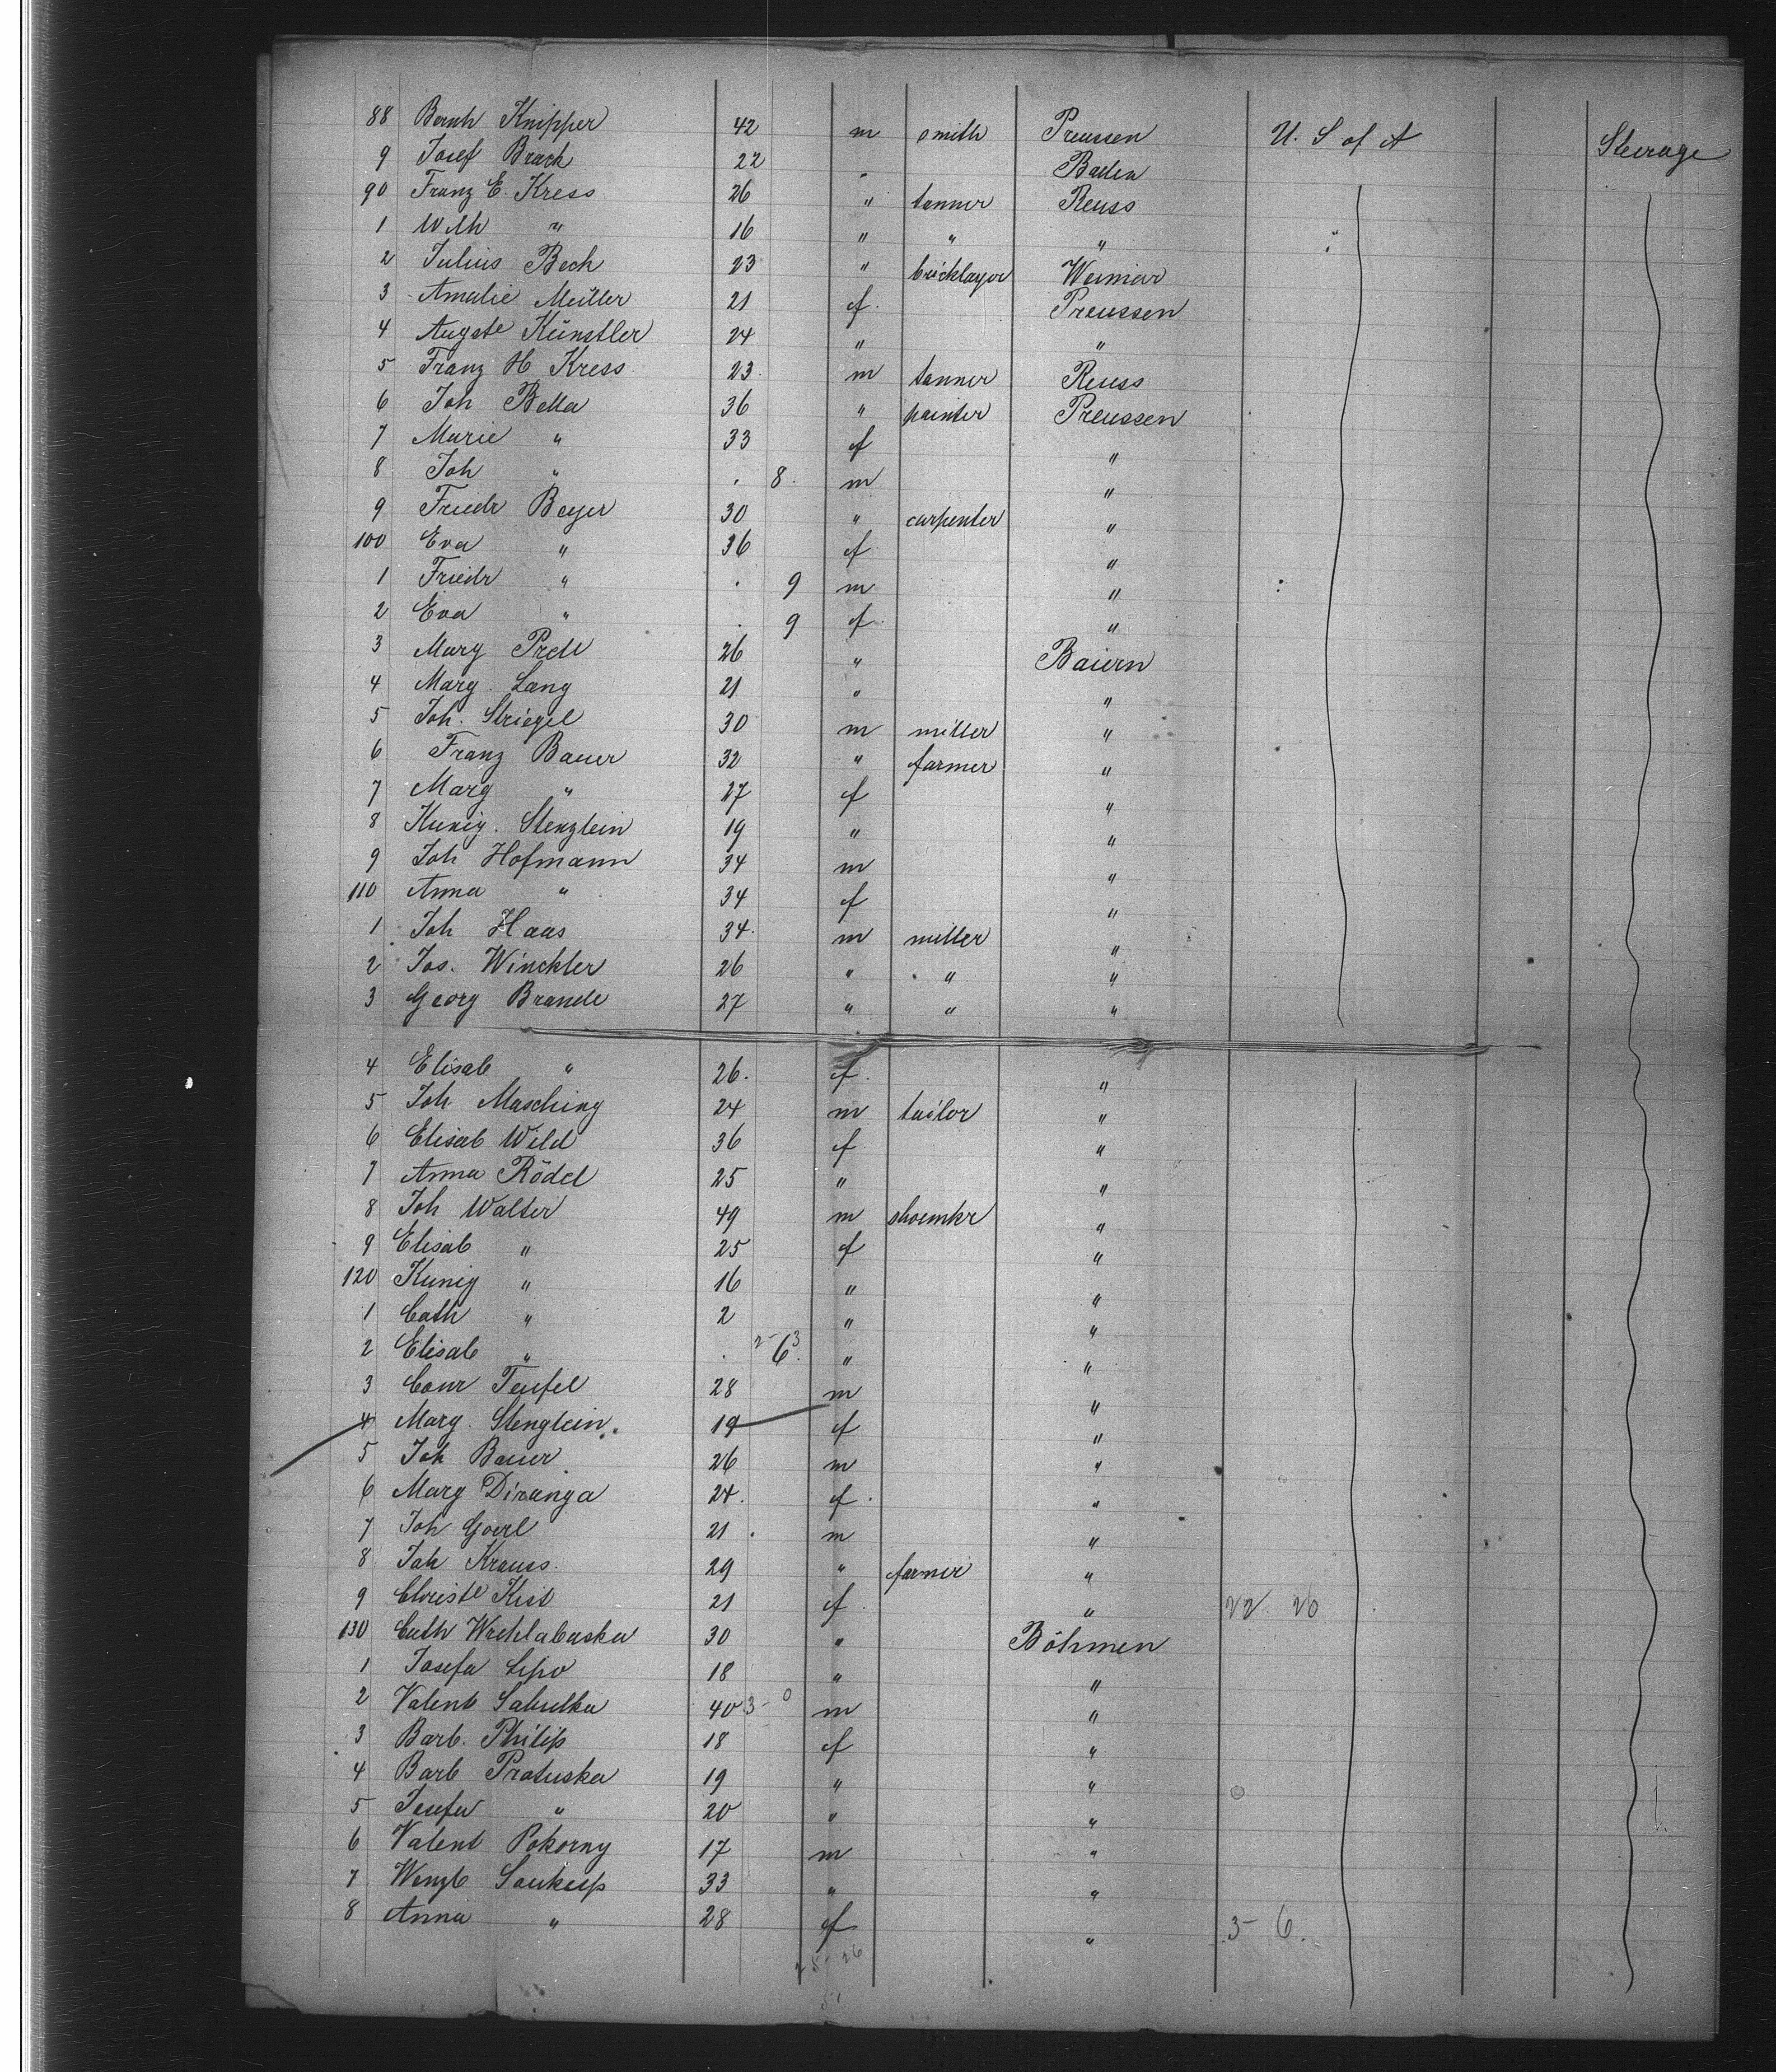 88 Bernh Knipper 42 m smith Preussen U. S of A Steerage
9 Josef Brach 22 " Baden
90 Franz E. Kress 26 " tanner Reuss
1 Wilh " 16 " " " "
2 Julius Bech 23 " bricklayer Weimar
3 Amalie Meiller 21 f. Preussen
4 Augste Künstler 24 " "
5 Franz H Kress 23 m tanner Reuss
6 Joh Bella 36 " painter Preussen
7 Marie " 33 f "
8 Joh " . 8. m "
9 Friedr Beyer 30 " carpenter "
100 Eva " 36 f "
1 Friedr " . 9 m "
2 Eva " . 9 f. "
3 Marg 26 " Baiern
4 Marg. Lang 21 " "
5 Joh. Striegel 30 m miller "
6 Franz Bauer 32 " farmer "
7 Marg " 27 f "
8 Kunig. Stenglein 19 " "
9 Joh Hofmann 34 m "
110 Anna " 34 f "
1 Joh Haas 34. m miller "
2 Jos. Winckler 26 " " "
3 Georg Brandl 27 " " "
4 Elisab " 26. f. "
5 Joh Masching 24 m tailor "
6 Elisab Wild 36 f "
7 Anna Rödel 25 " "
8 Joh Walter 49 m shoemkr "
9 Elisab " 25 f "
120 Kunig " 16 " "
1 Cath " 2 " "
2 Elisab " . 2- 6 3. " "
3 Conr Teufel 28 m "
4 Marg. Stenglein. 19 f "
5 Joh Bauer 26 m "
6 Marg Diranga 24. f. "
7 Joh Goerl 21. m "
8 Joh Krauss. 29 " farmer "
9 Christe Kist 21 f. " 22 20
130 Cath 30 " Böhmen
1 Josefa 18 " "
2 Valent 40 3- 0 m "
3 Barb. Philip 18 f "
4 Barb Pratuska 19 " "
5 Josefa " 20 " "
6 Valent Pokorny 17 m "
7 Wenzl Soukup 33 " "
8 Anna " 28 f " 3- 6.
25. 26